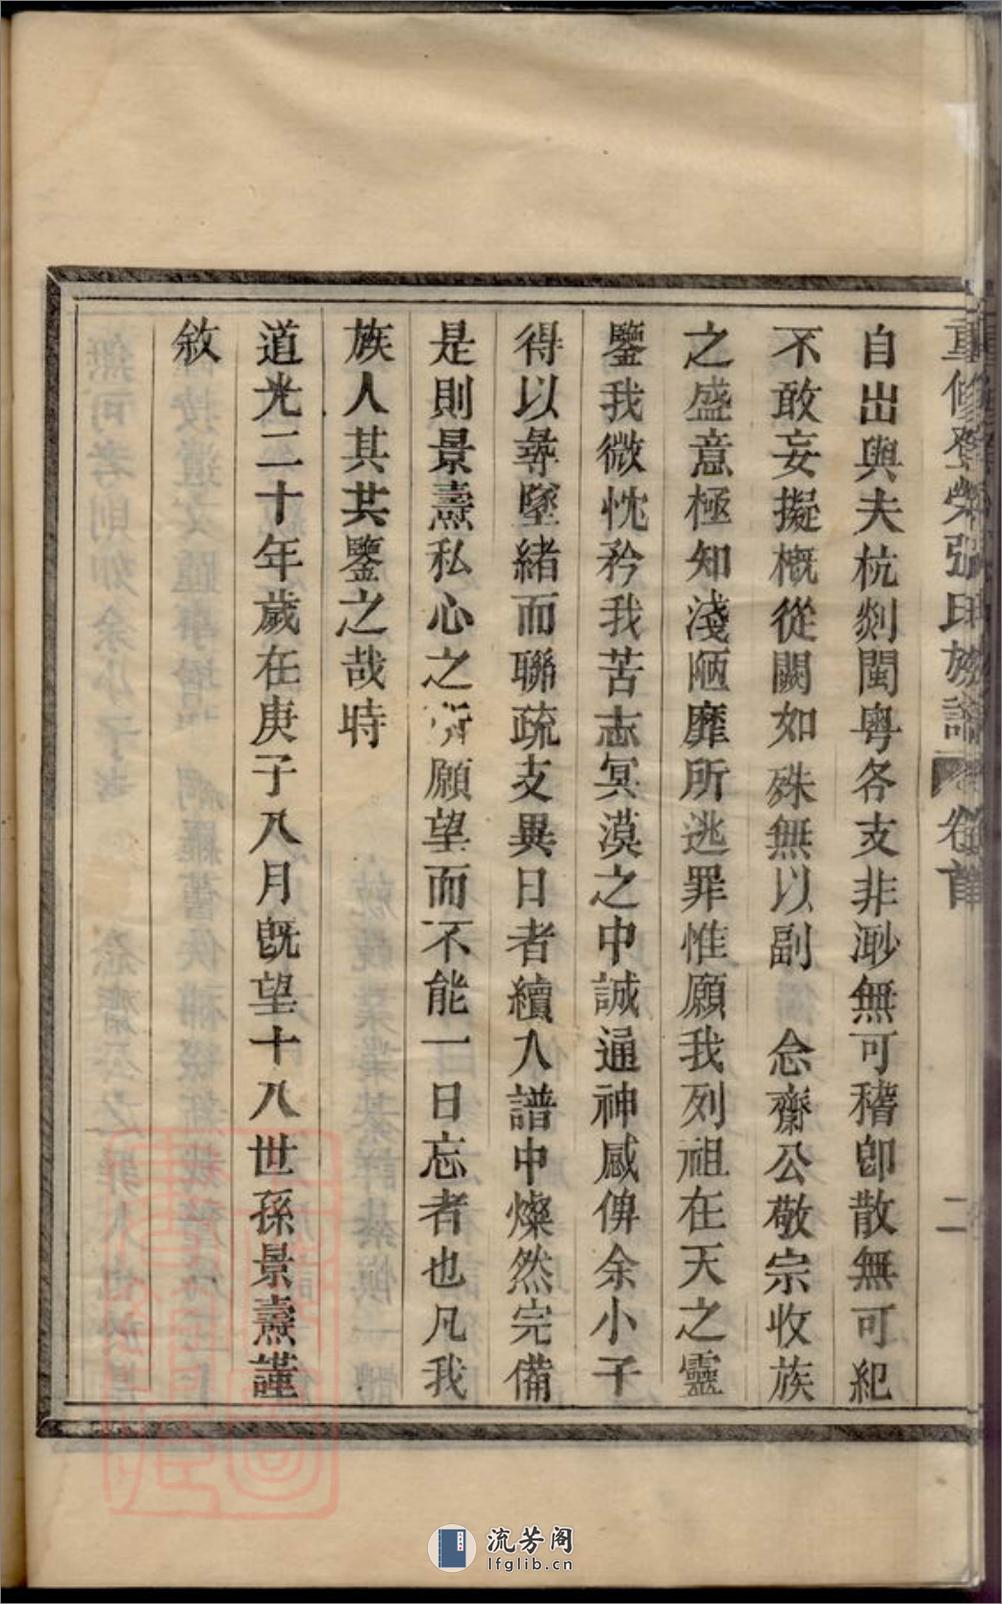 重修登榮張氏族譜 卷首 二
自出與夫杭剡閩粵各支非渺無可稽卽散無可紀
不敢妄擬概從闕如殊無以副 念齋公敬宗收族
之盛意極知淺陋靡所逃罪惟願我列祖在天之靈
鑒我微忱矜我苦志冥漠之中誠通神感俾余小子
得以尋墜緒而聯疏支異日者續入譜中燦然完備
是則景燾私心之所願望而不能一日忘者也凡我
族人其共鑒之哉時
道光二十年歲在庚子八月旣望十八世孫景燾謹
敘
流芳阁
lfglib.cn